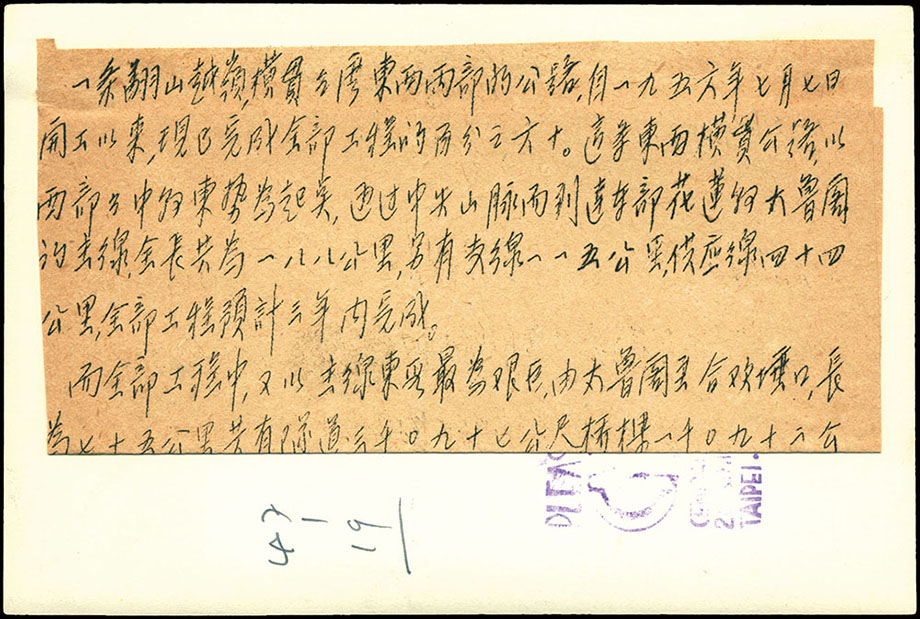 一条翻山越嶺,横貫台湾東西兩部的公路,自一九五六年七月七日
開工以來,現已完成全部工程的百分之六十。這条東西横貫公路,以
西部台中的東势為起点,通过中央山脈而到達東部花蓮的太魯閣
的主線,全長共為一八八公里,另有支線一一五公里,供应線四十四
公里,全部工程預計三年内完成。
而全部工程中,又以主線東段最為艰巨,由太魯閣至合欢埡口,長
為七十五公里共有隧道三千〇九十七公尺橋樑一千〇九十二公
PLEAS
TAIPEI.
47
1
19